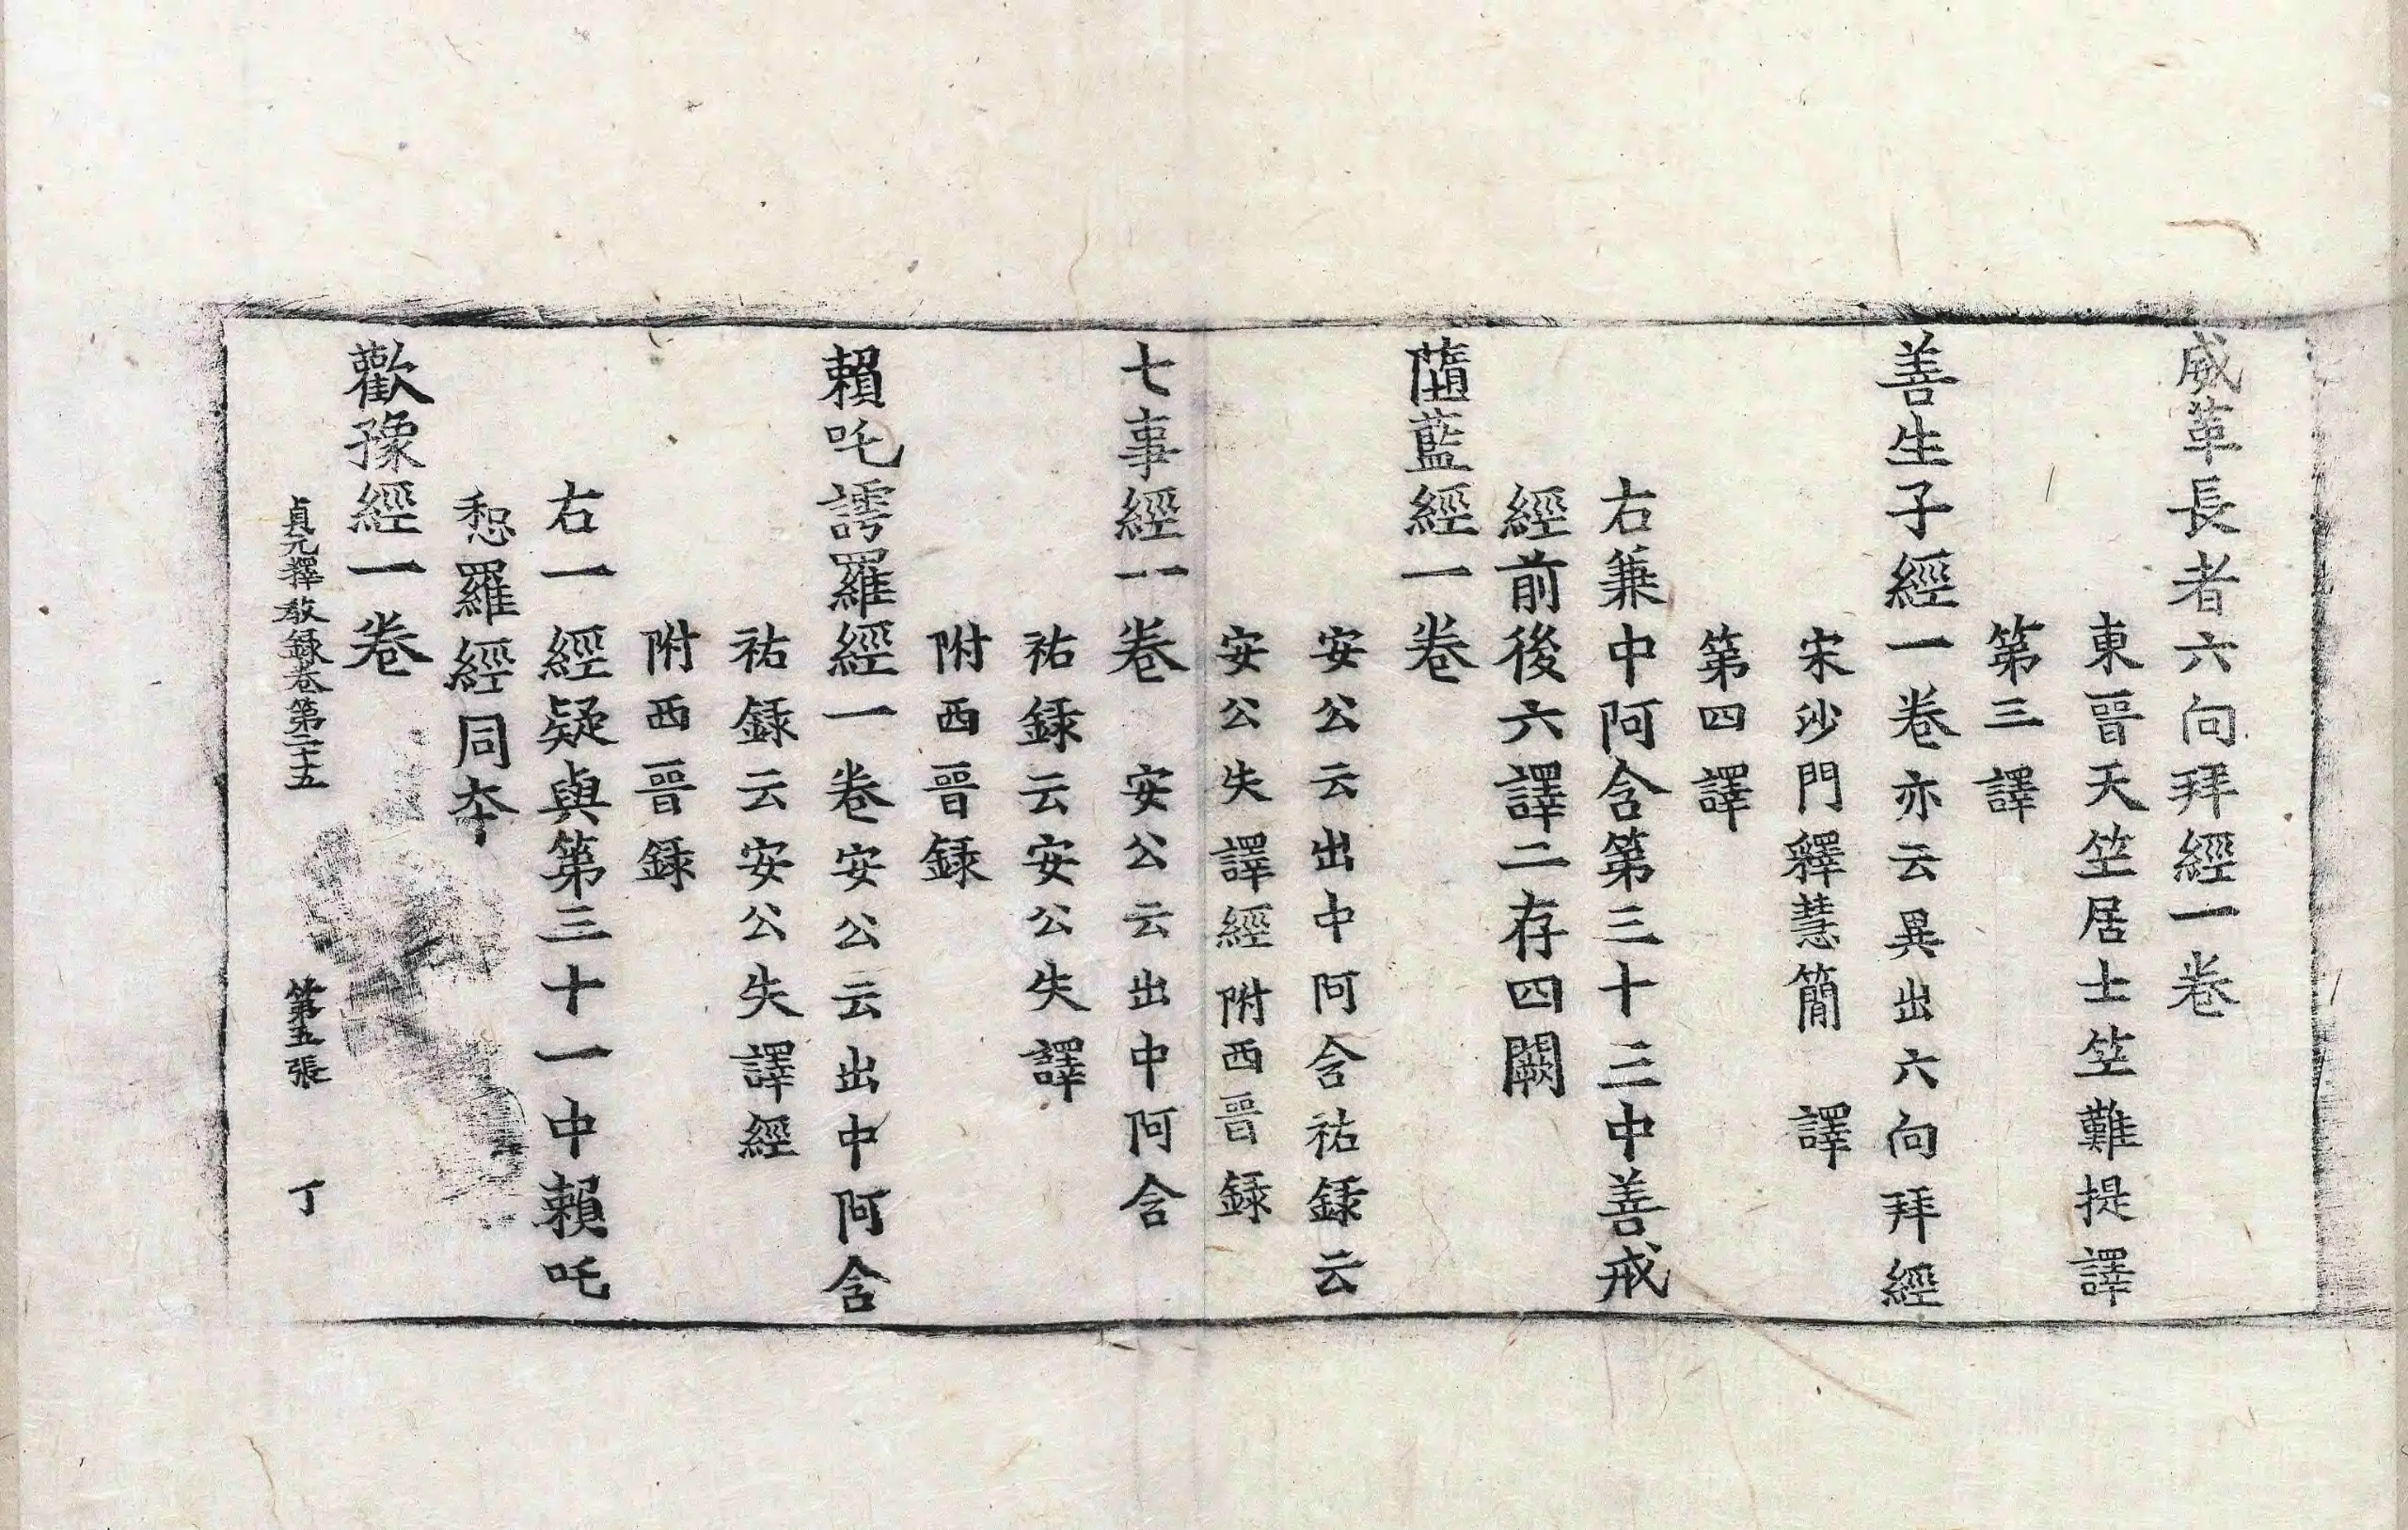 威革長者六向拜經一卷
東晉天竺居士竺難提譯
第三譯
善生子經一卷亦云異出六向拜經
宋沙門釋慧簡　譯
第四譯
右蒹中阿含第三十三中善戒
經前後六譯二存四闕
䕫藍經一卷
安公云出中阿含祐録云
安公失譯經附西晉録
七事經一卷　安公云出中阿含
祐録云安公失譯
附西晉録
賴吒謣羅經一卷安公云出中阿含
祐録云安公失譯經
附西晉録
右一經疑與第三十一中賴吒
惒羅經同夲
歡豫經一卷
貞元釋教録卷第二十五　第五張　丁